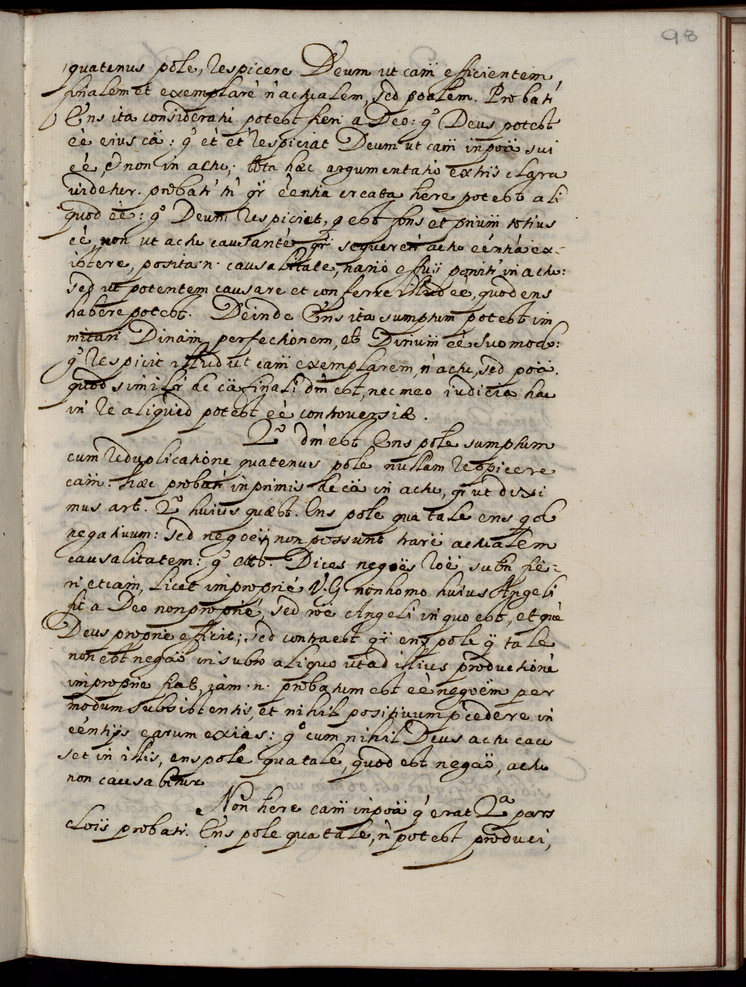 98
quatenus põle, respicere Deum ut cam̃ efficientem
finalem et exemplarẽ ñ actualem, sed põalem. Probat̃
Ens ita consideratũ potest fieri a Deo: gº Deus potest
ẽe eius cã: gº et respiciat Deum ut cam̃ in põa sui
ẽe, et non in actu; tota hæc argumentatio ex his clara
videtur. probat̃ ẽentia creata hẽre potest ali
quod ẽe: gº Deum respiciet, q est fons et primũ totius
ẽe, non ut actu causantẽ q̃ sequeret̃ actu ẽentia ex-
istere, posita ñ causalitate, ponit̃ in actu:
sed ut potentem causare et conferre illud ẽe, quod ens
habere potest. Deinde Ens ita sumptum potest im
mitari Divinam perfectionem, et Divinũ ẽe suo modo:
gº respicit illud ut cam̃ exemplarem, ñ actu, sed põa.
quod simil̃r de cã finali dm̃ est, nec meo iudicio hac
in re aliquid potest ẽe controversiæ.
2º dm̃ est Ens põle sumptum
cum reduplicatione quatenus põle nullam respicere
cam̃: hæc probat̃ in primis de cã in actu, q̃ ut dixi
mus art. 2º huius quæst. Ens põle qua tale ens est
negativum: sed negões non possunt hãre actualem
causalitatem: gº etc. Dices negões rõẽ subti fie-
ri etiam, licet impropriẽ V.G. non homo huius Angeli
fit a Deo non propriẽ, sed rõe Angeli in quo est, et quẽ
Deus proprie efficit; sed contra est q̃ ens põle q̃ tale
non est negão in subto aliquo ut ad illius productionẽ
improprie fiat, iam .n. probatum est ẽe negõem per
modum subsistentis, et nihil positivum præcedere in
ẽentijs earum exĩas: gº cum nihil Deus actu cau
set in illis, ens põle qua tale, quod est negão, actu
non causabitur
Non hẽre cam̃ in põa q̃ erat 2ª pars
clõis probat̃. Ens põle qua tale, ñ potest produci,